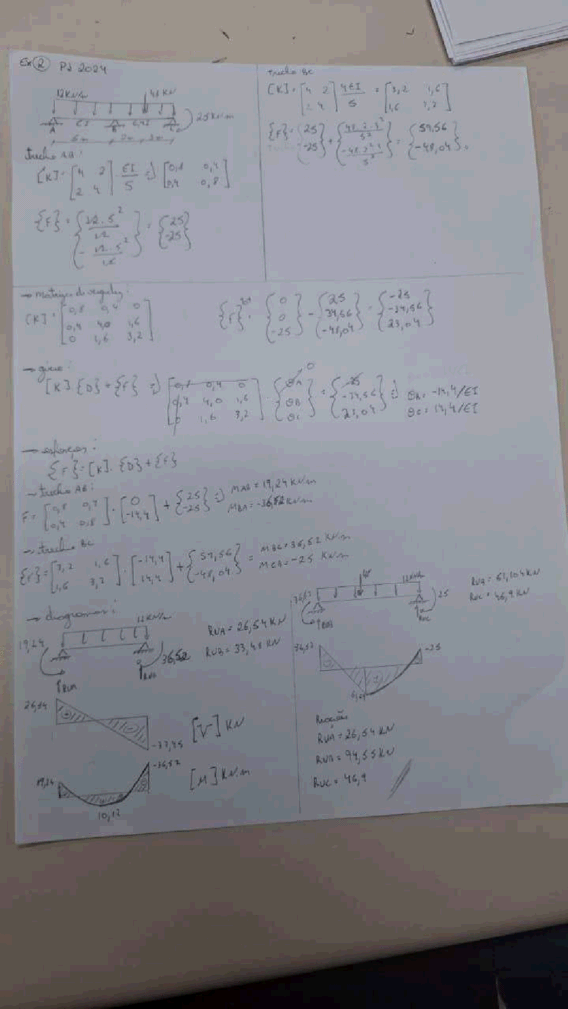 Ex 2 P2 2024
12KN/m 48 KN
25KN.m
EI 4EI
A B C
5m 2m 3m
trecho AB:
[K] = [4 2 2 4] EI/5 [0,8 0,4 0,4 0,8]
{F} = {12.5²/12 -12.5²/12} = {25 -25}
trecho BC
[K] = [4 2 2 4] 4EI/5 = [3,2 1,6 1,6 3,2]
{F} = {25 -25} + = {59,56 -48,04}
→ matriz de
[K] = [0,8 0,4 0 0,4 4,0 1,6 0 1,6 3,2]
{F} = {0 0 -25} - {25 34,56 -48,04} = {-25 -34,56 23,04}
→ giros:
[K].{D}+{F} [0,8 0,4 0 0,4 4,0 1,6 0 1,6 3,2] . {θA θB θC} = {-25 -34,56 23,04}
θB = -14,4/EI
θC = 14,4/EI
→ esforços:
{F}=[K].{D}+{F}
→ trecho AB:
F = [0,8 0,4 0,4 0,8] . [0 -14,4] + {25 -25} MAB = 19,24 KN.m
MBA = -36,52 KN.m
→ trecho BC
{F}=[3,2 1,6 1,6 3,2] . [-14,4 14,4] + {59,56 -48,04} = MBC = 36,52 KN.m
MCB = -25 KN.m
→ diagramas:
12KN/m
19,24 36,52
RVA RVB
RVA = 26,54 KN
RVB = 33,45 KN
26,54
-33,45
[V] KN
19,24 -36,52
[M] KN.m
10,12
36,52 48 12KN/m 25
RVB RVC
RVB = 61,104 KN
RVC = 46,9 KN
36,52 -25
Reações
RVA = 26,54 KN
RVB = 94,55 KN
RVC = 46,9